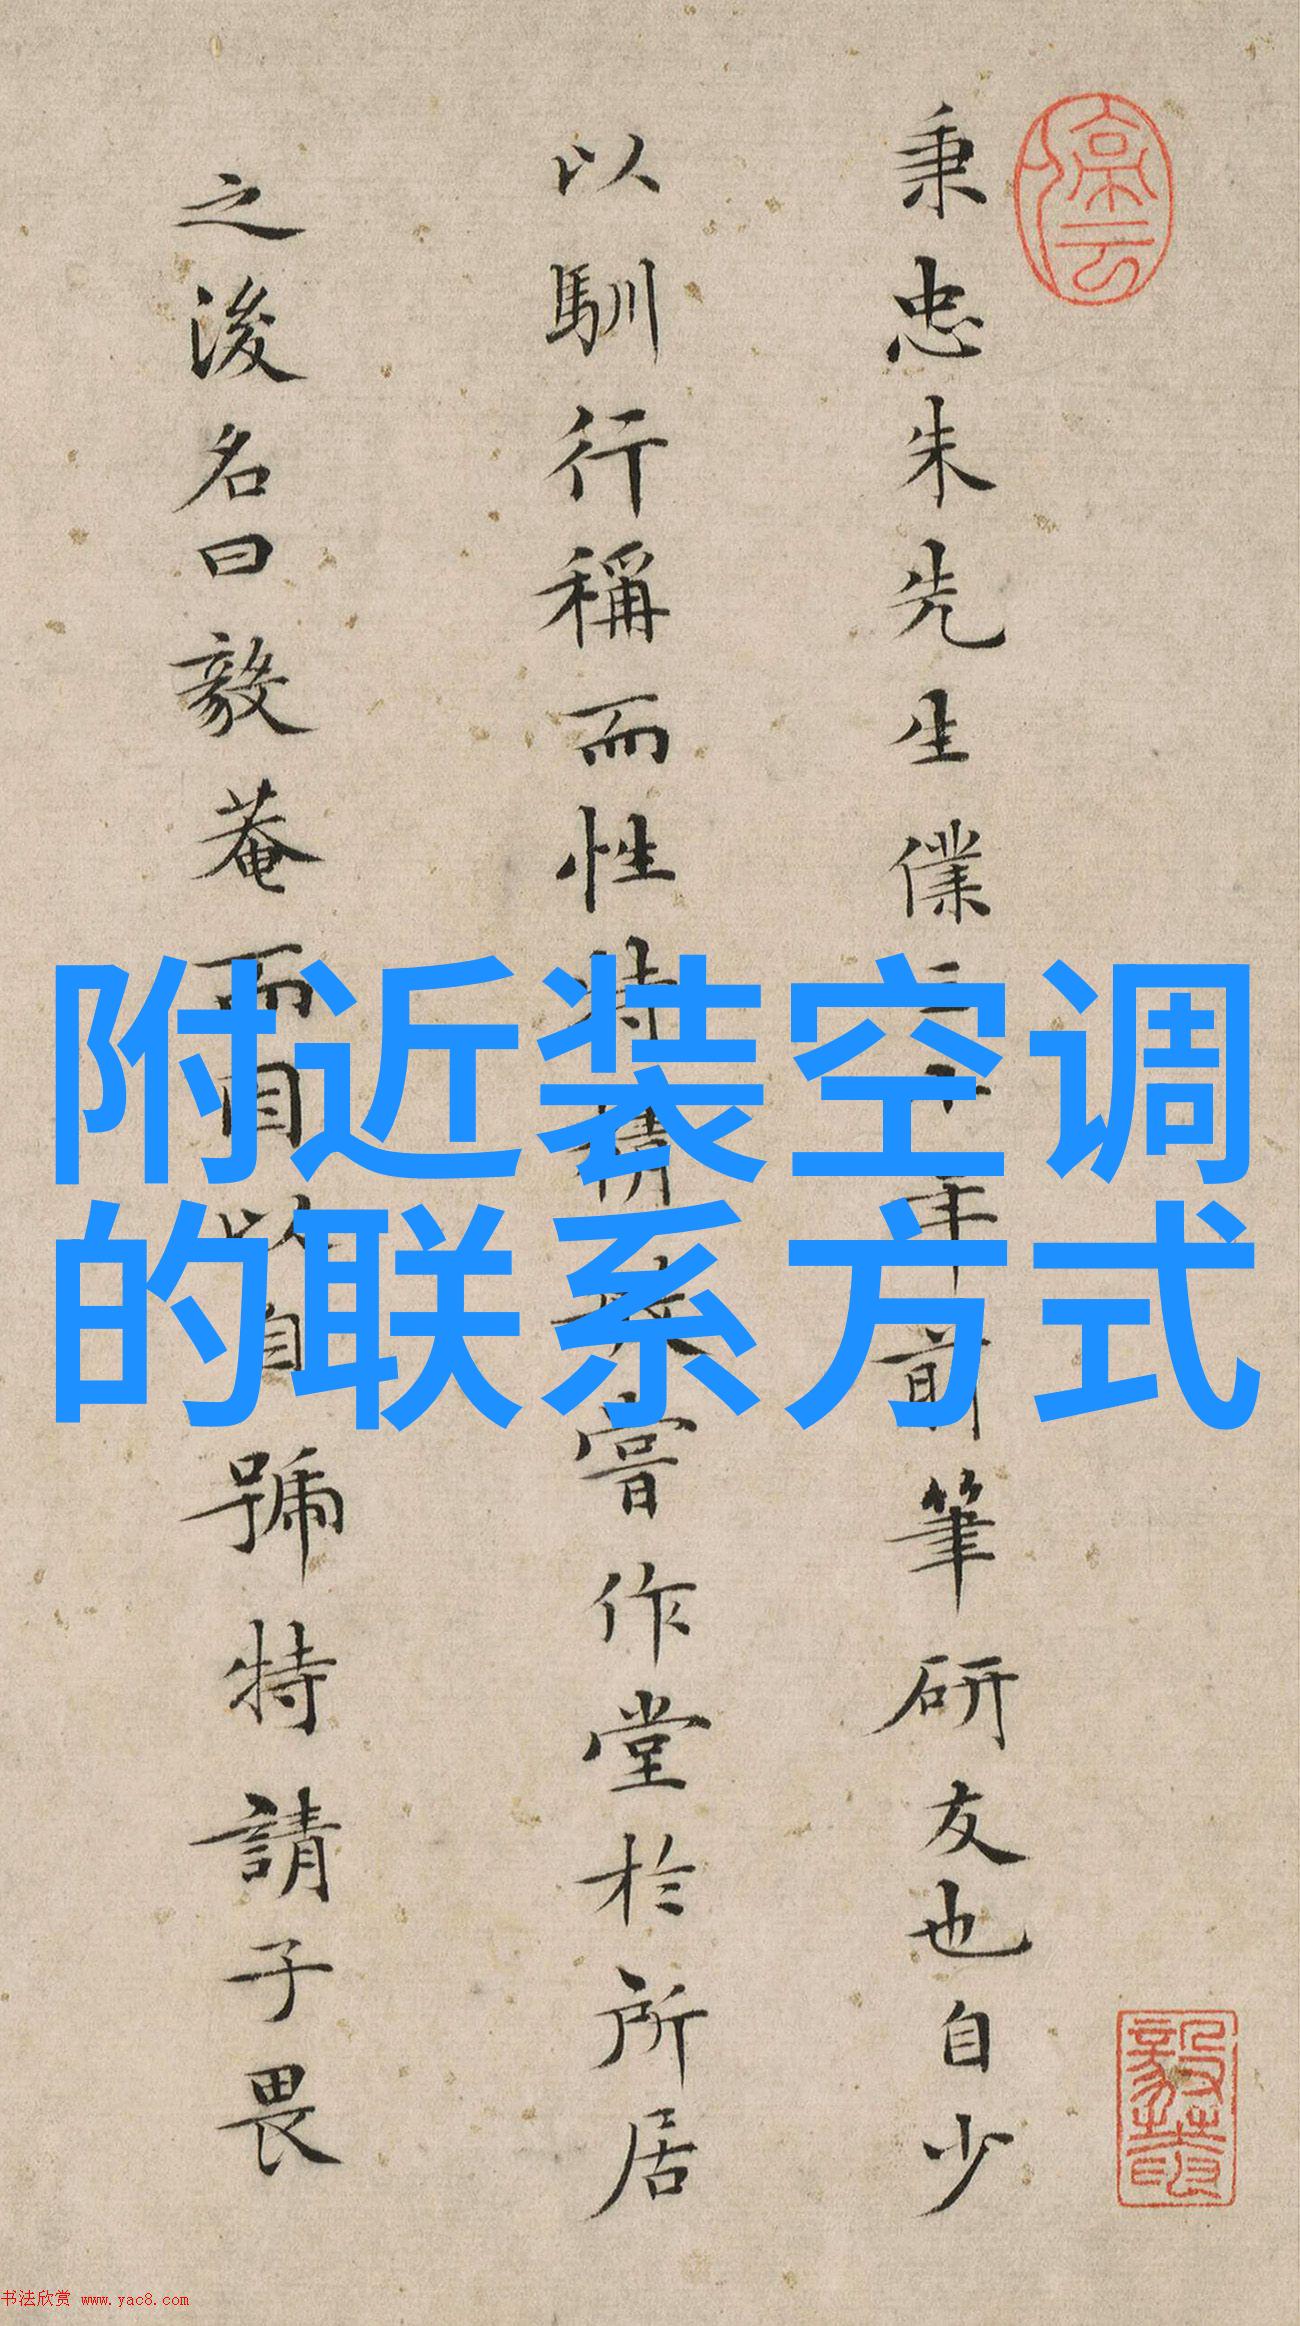 附近装空调
的联系方式
秉忠朱先生僕三十年前筆研友也自少
以馴行稱而性特精爽嘗作堂於所居
之後名曰毅菴而因以自號特請子畏
書法欣赏 www.yac8.com